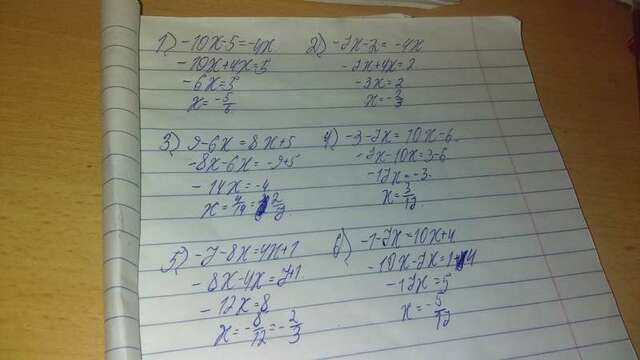 1) -10x-5=-4x
-10x+4x=5
-6x=5
x=-5/6
2) -7x-2=-4x
-7x+4x=2
-3x=2
x=-2/3
3) 9-6x=8x+5
-8x-6x=-9+5
-14x=-4
x=4/14=2/7
4) -3-7x=10x-6
-7x-10x=3-6
-17x=-3
x=3/17
5) -7-8x=4x+1
-8x-4x=7+1
-12x=8
x=-8/12=-2/3
6) -1-7x=10x+4
-10x-7x=1+4
-17x=5
x=-5/17